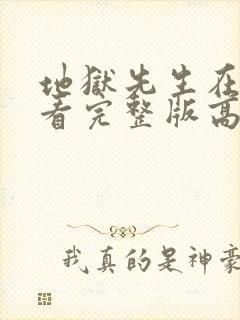 地獄先生在
看完整版高
我真的是神豪